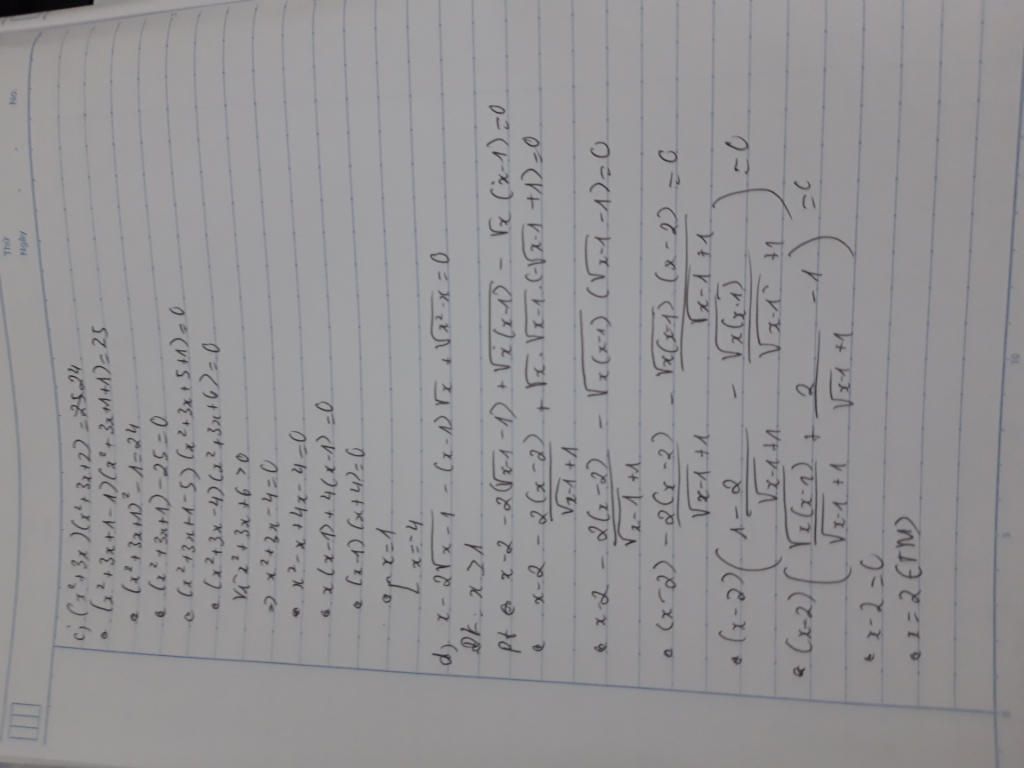 Thứ
Ngày
No.
c; (x²+3x)(x²+3x+2)=25-24
• (x²+3x+1-1)(x²+3x+1+1)=25
• (x²+3x+1)²-1=24
• (x²+3x+1)-25=0
• (x²+3x+1-5)(x²+3x+5+1)=0
• (x²+3x-4)(x²+3x+6)=0
Vì x²+3x+6>0
⇒ x²+3x-4=0
• x²-x+4x-4=0
• x(x-1)+4(x-1)=0
• (x-1)(x+4)=0
• [x=1
x=-4
d) x-2√x-1 -(x-1)√x+√x²-x=0
ĐK: x≥1
pt • x-2-2(√x-1 -1)+√x(x-1) -√x(x-1)=0
• x-2 - 2(x-2)/√x-1+1 + √x.√x-1.(-√x-1+1)=0
• x-2 - 2(x-2)/√x-1+1 - √x(x-1) (√x-1 -1)=0
• (x-2) - 2(x-2)/√x-1+1 - √x(x-1)(x-2)/√x-1+1 =0
• (x-2)(1 - 2/√x-1+1 - √x(x-1)/√x-1+1)=0
• (x-2)(√x(x-1)/√x-1+1 + 2/√x-1+1 -1)=0
• x-2=0
• x=2 (TM)
0
5
10